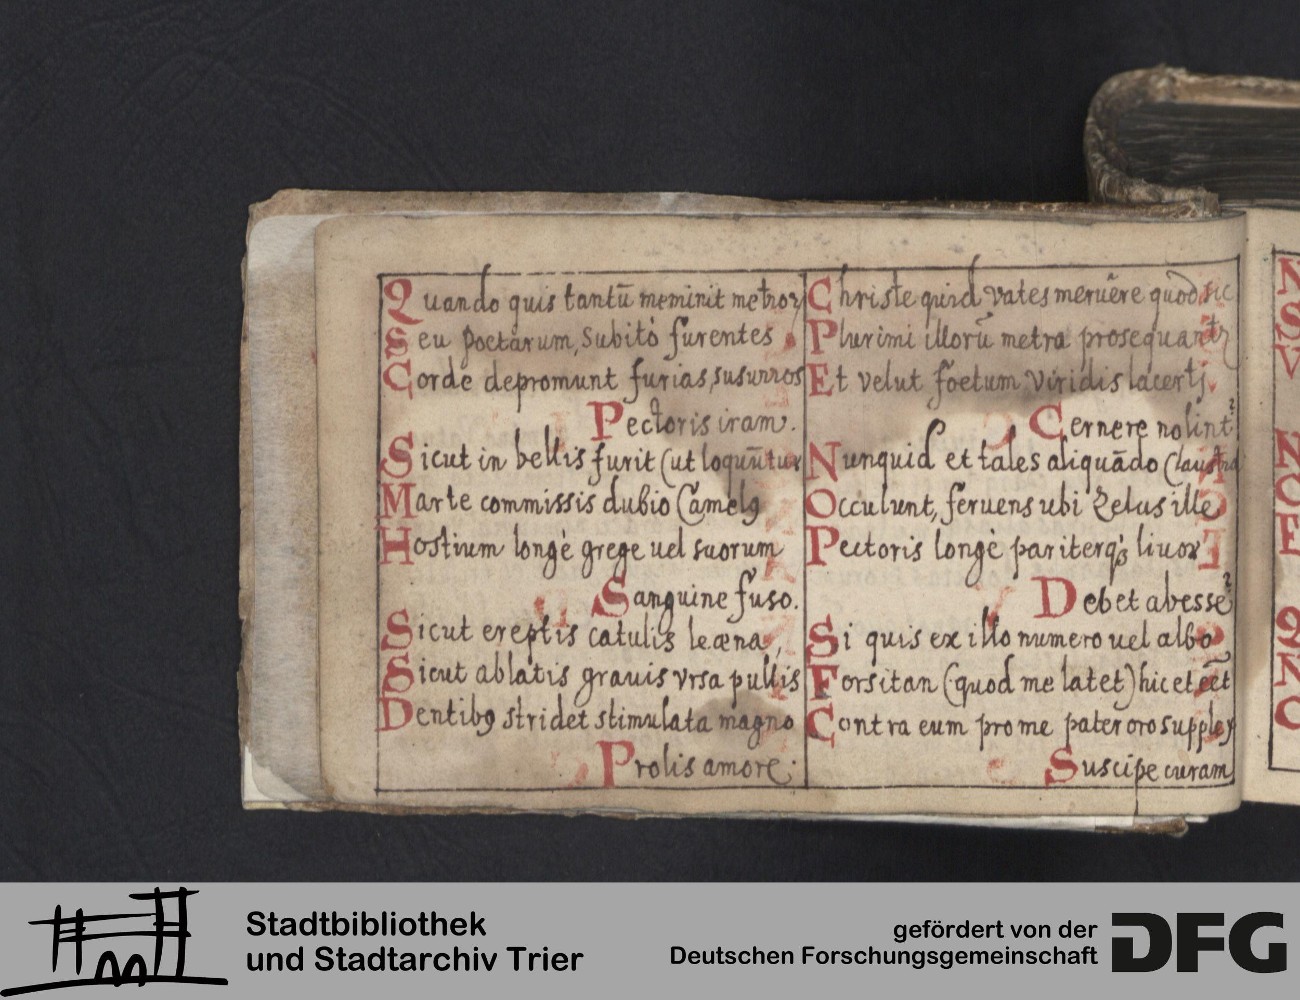 Quando quis tantū meminit metroꝝ
Seu Poetarum, Subitò furentes
Corde depromunt furias, susurros
Pectoris iram.
Sicut in bellis furit (ut loquūtur
Marte commissis dubio Camelꝰ
Hostium longè grege uel suorum
Sanguine fuso.
Sicut ereptis catulis leæna,
Sicut ablatis grauis vrsa pullis
Dentibꝰ stridet stimulata magno
Prolis amore.
Christe quid vates meruêre quod sic
Plurimi illorū metra prosequantꝛ
Et velut foetum viridis lacertj
Cernere nolint?
Nunquid et tales aliquādo Claustra
Occulunt, feruens ubi Zelus ille
Pectoris longè pariterqꝫ liuor
Debet abesse?
Si quis ex illo numero uel albo
Forsitan (quod me latet) hic et
Contra eum pro me pater oro supplex
Suscipe curam
Stadtbibliothek
und Stadtarchiv Trier
gefördert von der
Deutschen Forschungsgemeinschaft
DFG